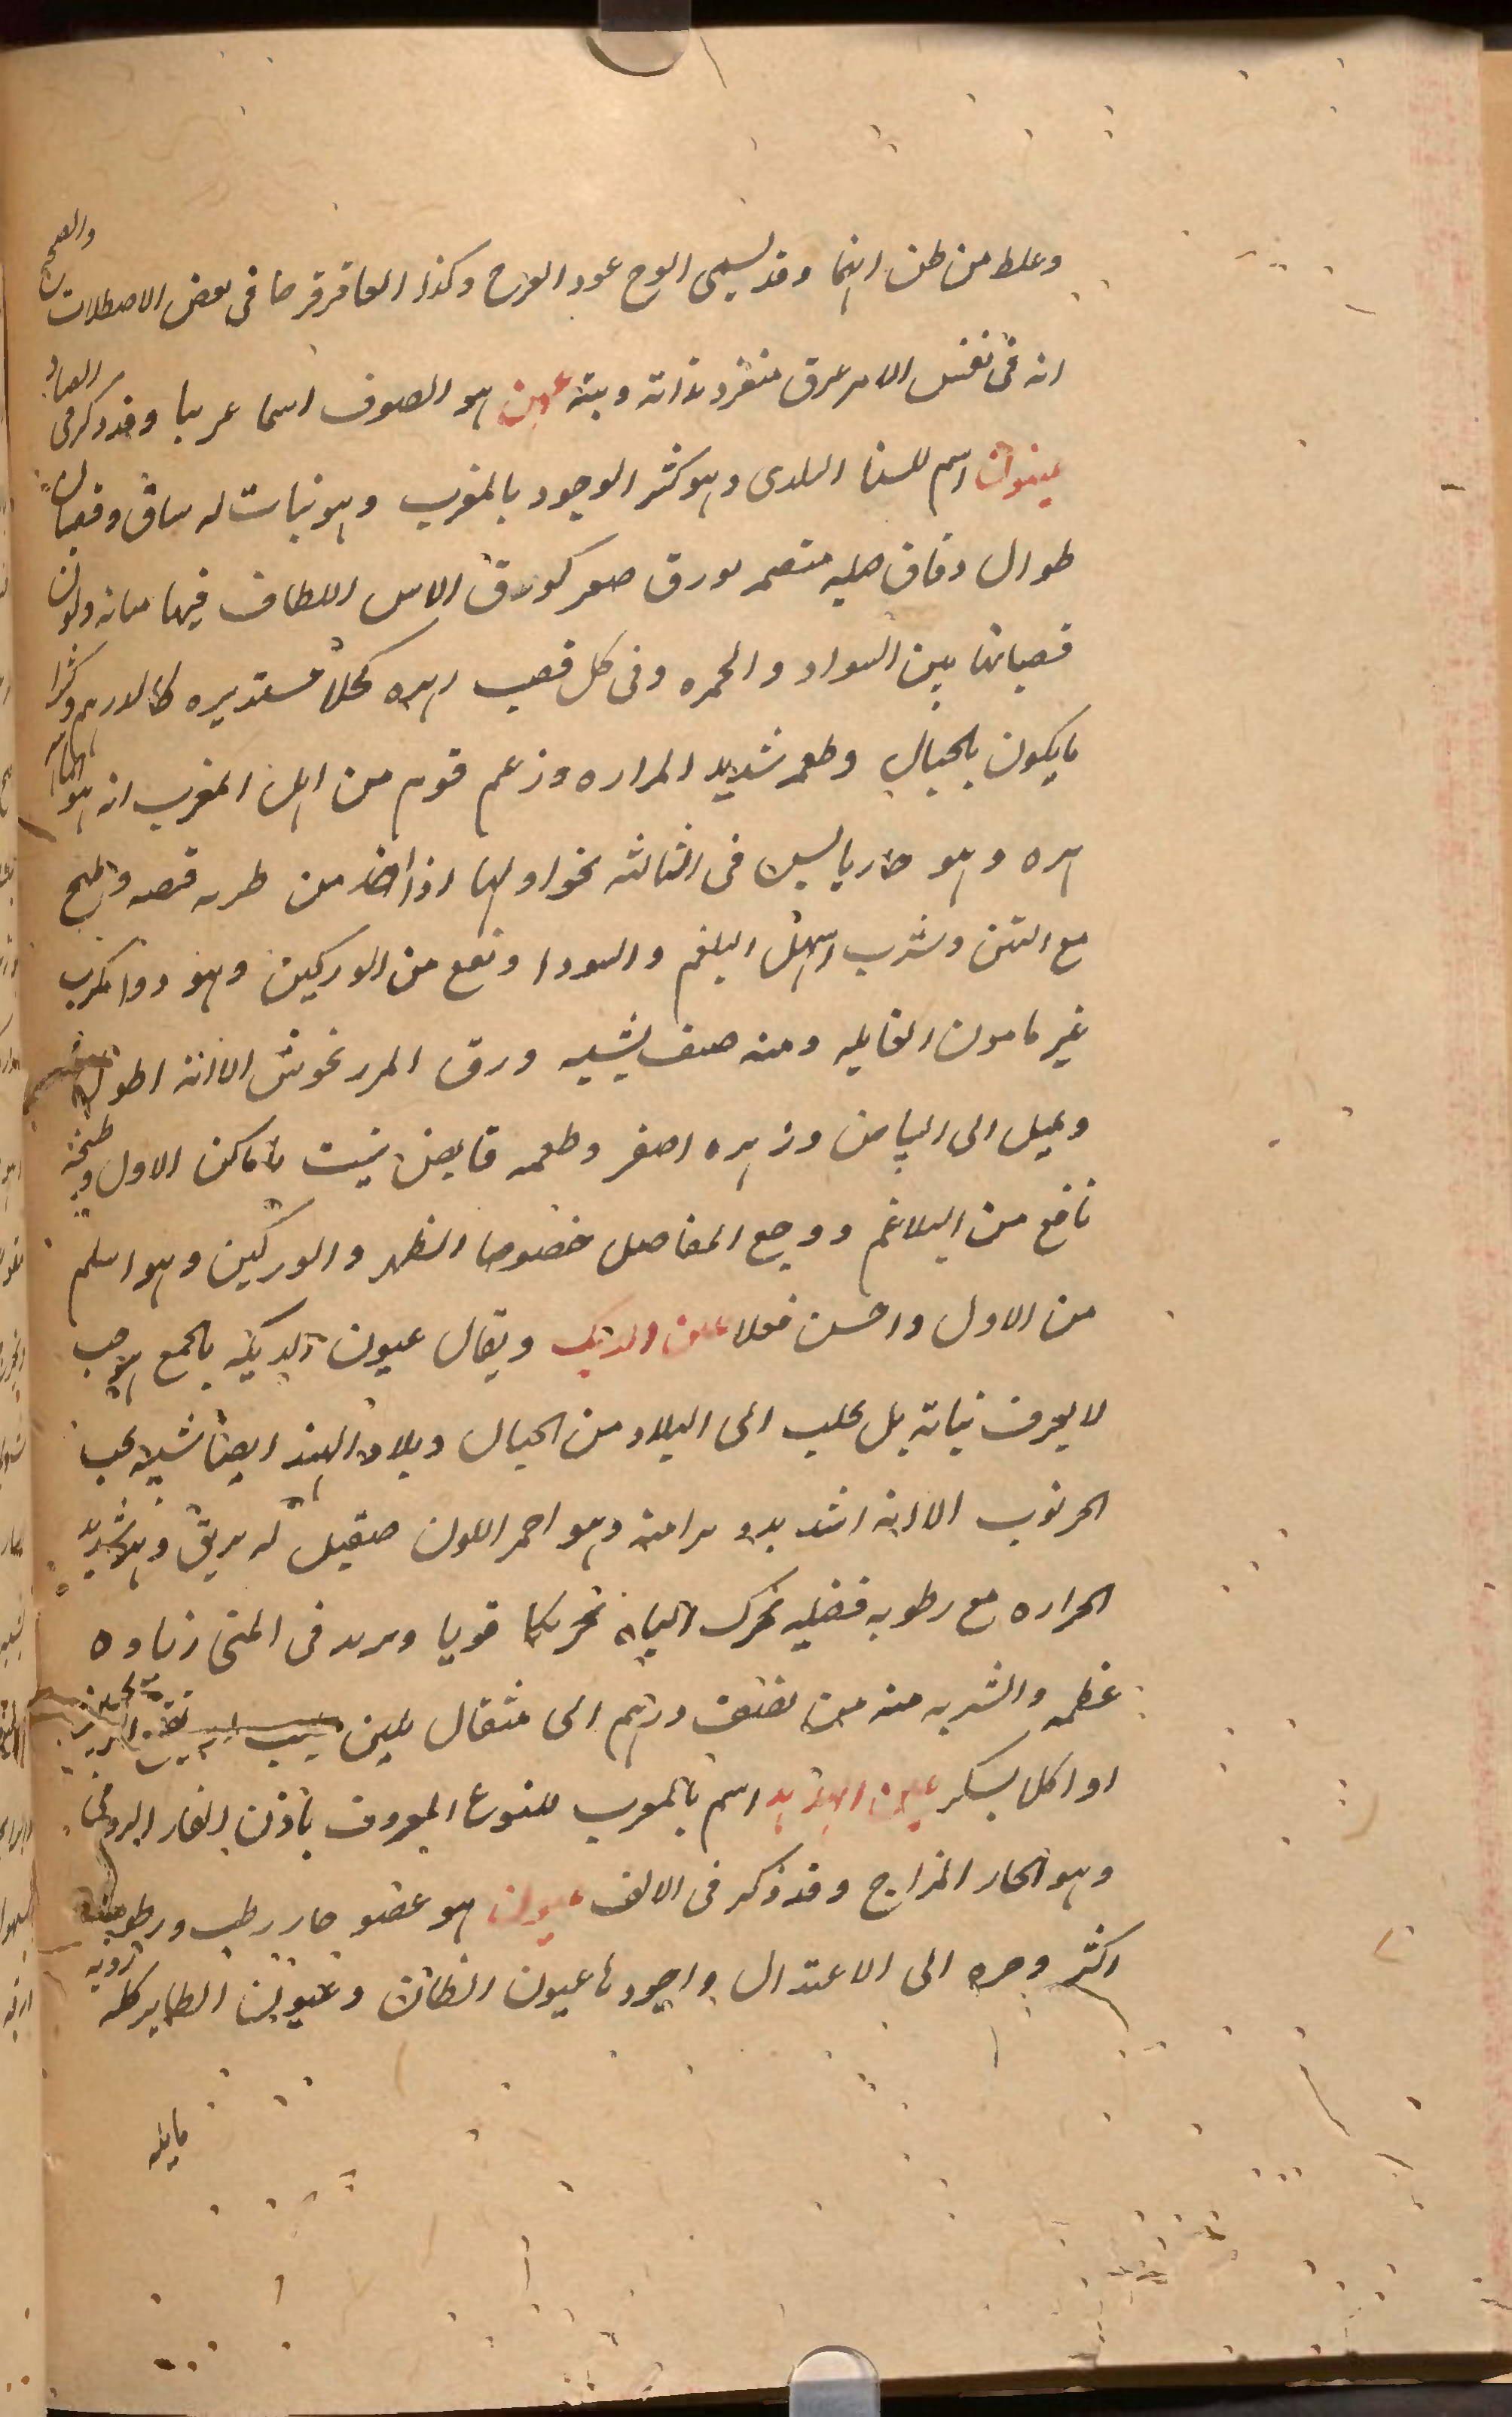 وغلط من ظن انهما وقد يسمى الوج عود الوج وكذا العاقرقرحا فى بعض الاصطلاحات والصحيح
انه فى نفس الامر عرق منفرد بذاته ونبته عهن هو الصوف اسما عربيا وقد ذكر فى الصاد
عينون اسم للسنا البلدى وهو كثير الوجود بالمغرب وهو نبات له ساق وقضبان
طوال دقاق صلبه متصعه بورق صغير كورق الاس اللطاف فيها متانه ولون
قضبانها بين السواد والحمره وفى كل قضيب زهره كحلا مستديره كالدرهم وكثيرا
ما يكون بالجبال وطعمه شديد المراره وزعم قوم من اهل المغرب انه هو الماهى
زهره وهو حار يابس فى الثالثه نحو اولها اذا اخذ من طريه قبضه وطبخ
مع التين وشرب اسهل البلغم والسودا ونفع من الوركين وهو دوا مكرب
غير مامون الغايله ومنه صنف يشبه ورق المرزنجوش الا انه اطول
ويميل الى البياض وزهره اصفر وطعمه قابض ينبت باماكن الاول وطبيخه
نافع من البلاغم ووجع المفاصل خصوصا الظهر والوركين وهو اسلم
من الاول واحسن فعلا عين الديك ويقال عيون الديكه بالجمع هو حب
لا يعرف نباته بل يجلب الى البلاد من الجبال وبلاد الهند ايضا شبيه بحب
الخرنوب الا انه اشد تدويرا منه وهو احمر اللون صقيل له بريق وهو شديد
الحراره مع رطوبه فضليه يحرك الباه تحريكا قويا ويزيد فى المنى زياده
عظمه والشربه منه من نصف درهم الى مثقال بلبن
او اكل بسكر عين الهدهد اسم بالمغرب للنوع المعروف باذن الفار البرومى
وهو الحار المزاج وقد ذكر فى الالف عيون هو عضو حار رطب ورطوبته
اكثر وحره الى الاعتدال واجودها عيون الضان وعيون الطاير كله رديه
مايله